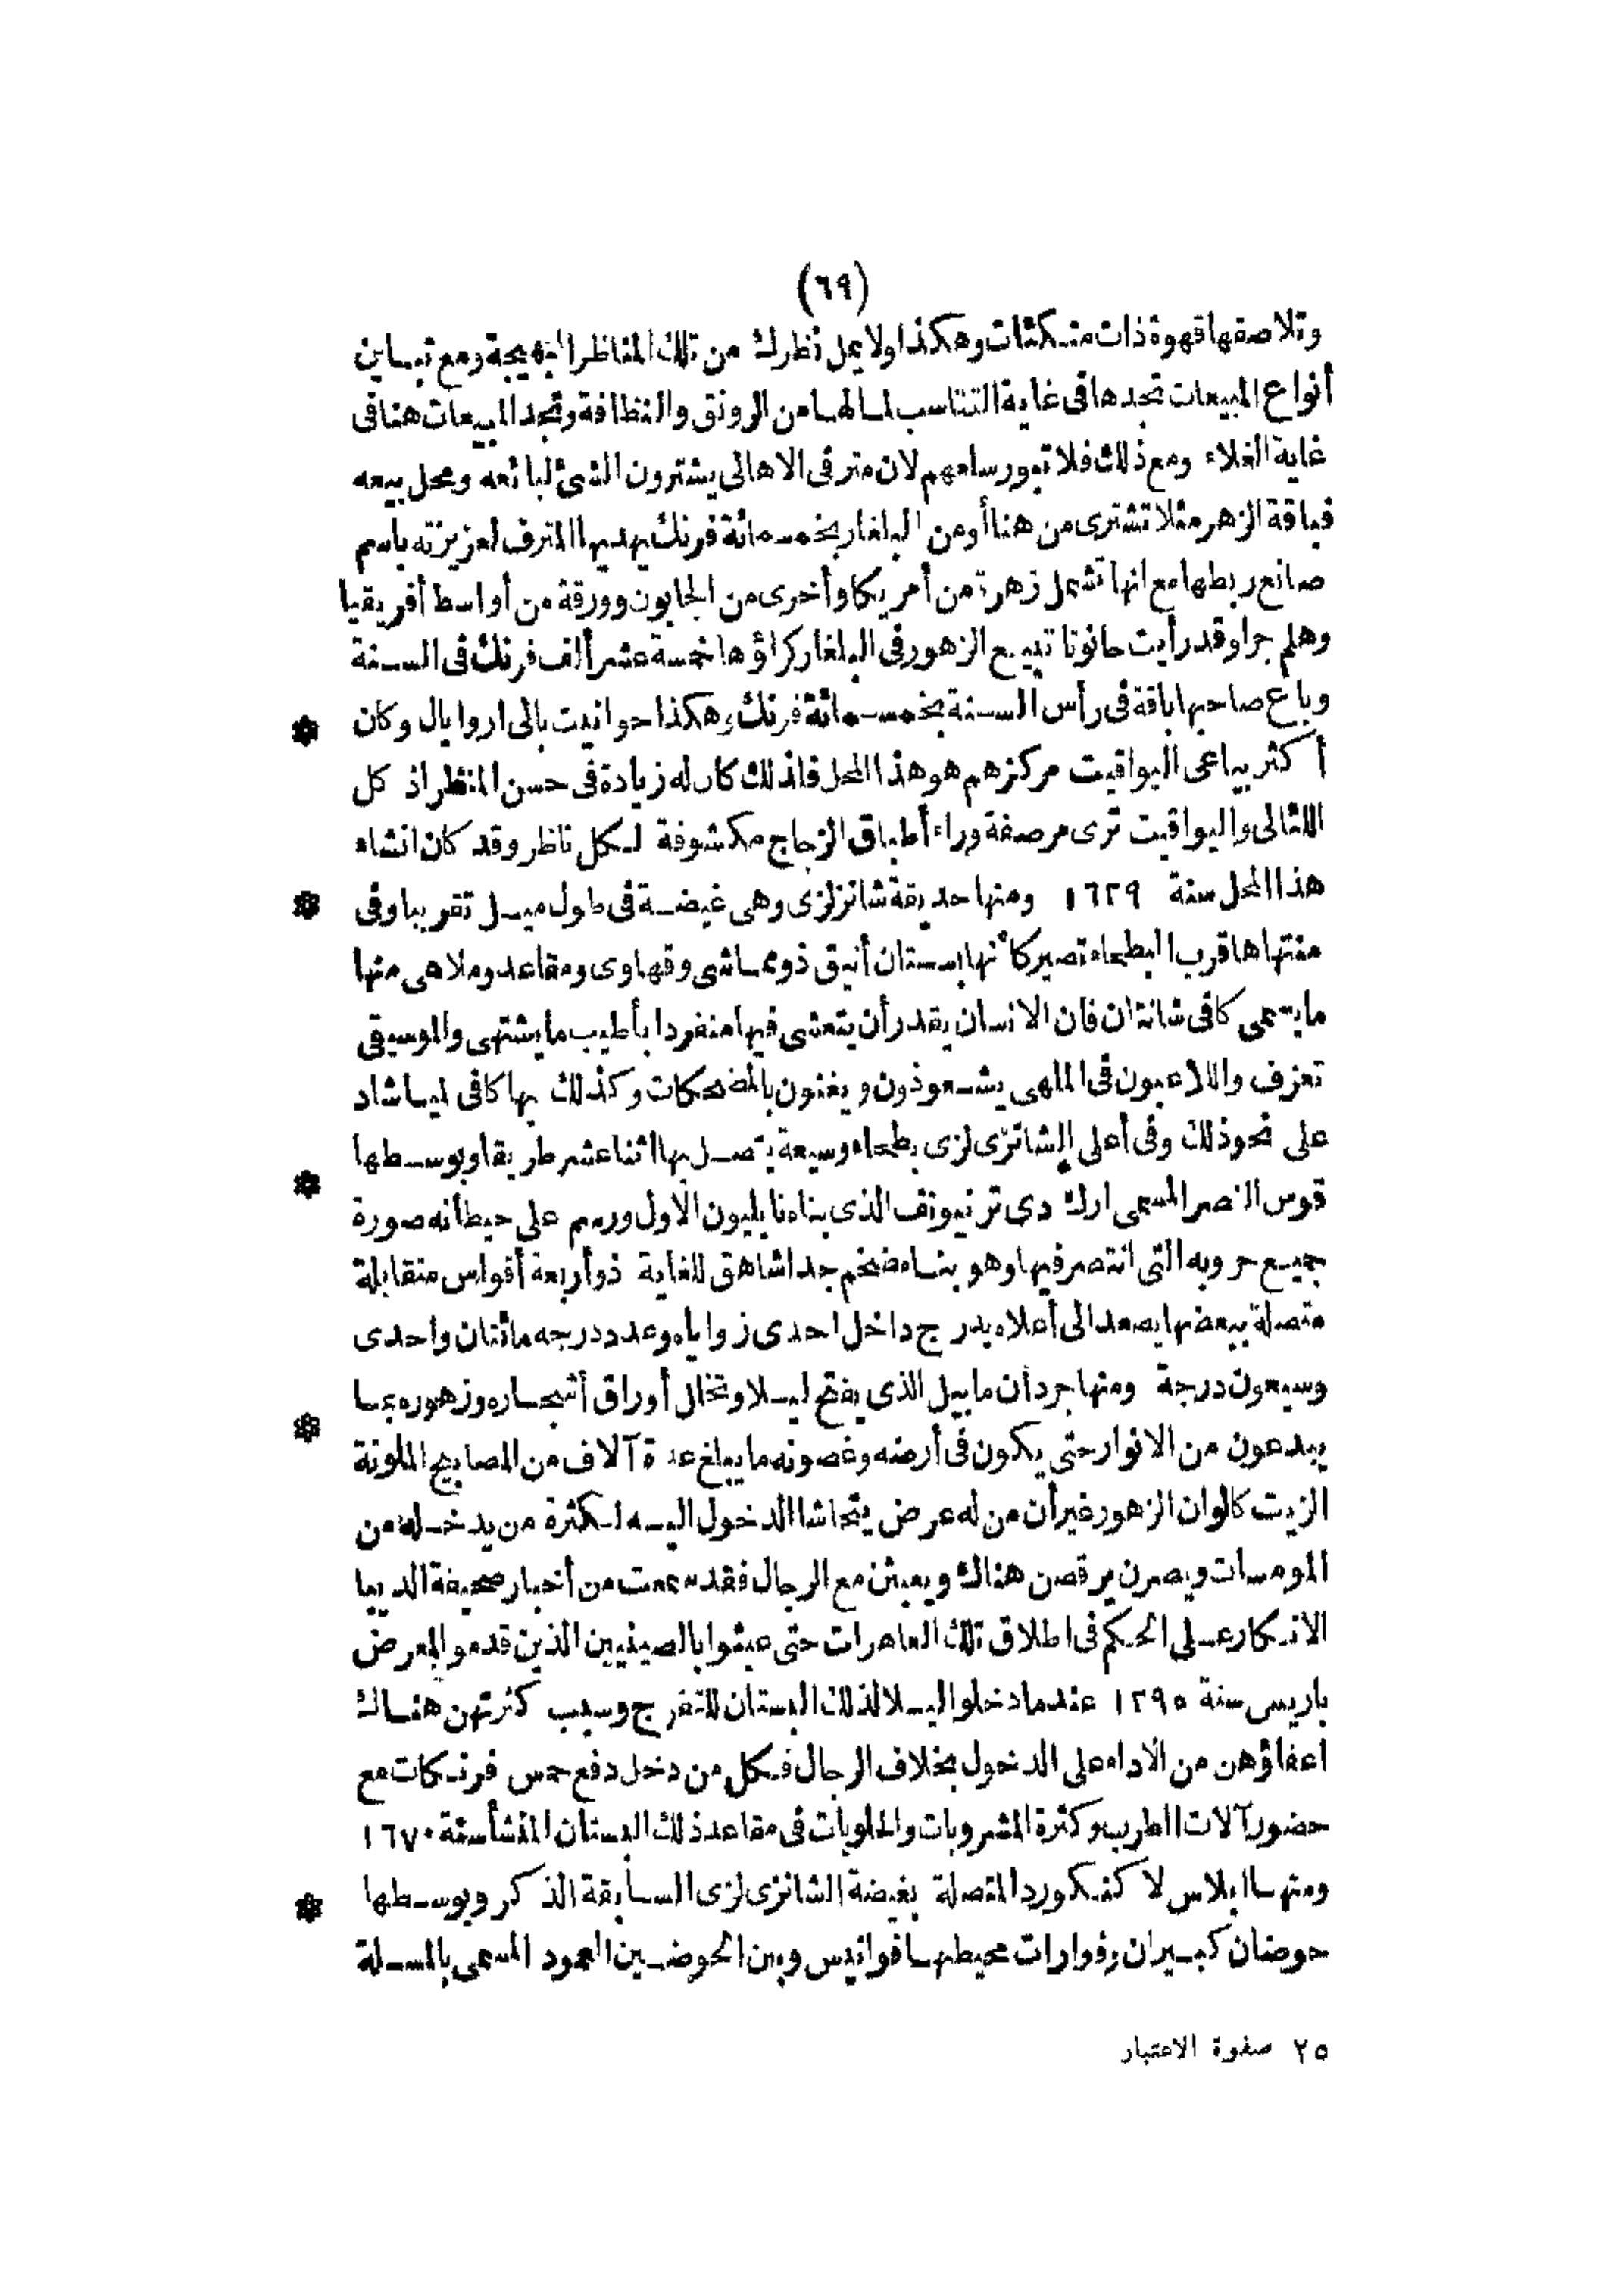 (٦٩)
وتلاصقها قهوة ذات متكئات وهكذا ولا يمل نظرك من تلك المناظر البهيجة ومع تباين
أنواع المبيعات تجدها فى غاية التناسب لما لها من الرونق والنظافة وتجد المبيعات هنا فى
غاية الغلاء ومع ذلك فلا تبور سلعهم لان مترفى الاهالى يشترون الشئ لبائعه ومحل بيعه
فباقة الزهر مثلا تشترى من هنا أو من البلفار بخمسمائة فرنك يهديها المترف لعزيزته باسم
صانع ربطها مع انها تشمل زهرة من أمريكا وأخرى من الجابون وورقة من أواسط أفريقيا
وهلم جرا وقد رأيت حانوتا تبيع الزهور فى البلفار كراؤها خمسة عشر ألف فرنك فى السنة
وباع صاحبها باقة فى رأس السنة بخمسمائة فرنك وهكذا حوانيت بالى اروايال وكان *
أكثر بياعى اليواقيت مركزهم هو هذا المحل فلذلك كان له زيادة فى حسن المنظر اذ كل
اللئالى واليواقيت ترى مرصفة وراء أطباق الزجاج مكشوفة لكل ناظر وقد كان انشاء
هذا المحل سنة ١٦٢٩ ومنها حديقة شانزلزى وهى غيضة فى طول ميل تقريبا وفى *
منتهاها قرب البطحاء تصير كأنها بستان أنيق ذو مماشى وقهاوى ومقاعد وملاهى منها
ما يسمى كافى شانتان فان الانسان يقدر أن يتعشى فيها منفردا بأطيب ما يشتهى والموسيقى
تعزف واللاعبون فى الملهى يشعوذون ويغنون بالمضحكات وكذلك بها كافى ليباشاد
على نحو ذلك وفى أعلى الشانزى لزى بطحاء وسيعة يتصل بها اثنا عشر طريقا وبوسطها
قوس النصر المسمى ارك دى ترنيونف الذى بناه نابليون الاول ورسم على حيطانه صورة *
جميع حروبه التى انتصر فيها وهو بناء ضخم جدا شاهق للغاية ذو أربعة أقواس متقابلة
متصلة ببعضها يصعد الى أعلاه بدرج داخل احدى زواياه وعدد درجه مائتان واحدى
وسبعون درجة ومنها جردان مابيل الذى يفتح ليلا وتخال أوراق أشجاره وزهوره بما *
يبدعون من الانوار حتى يكون فى أرضه وغصونه ما يبلغ عدة آلاف من المصابيح الملونة
الزيت كالوان الزهور غير أن من له عرض يتحاشا الدخول اليه لكثرة من يدخله من
المومسات ويصرن يرقصن هناك ويعبثن مع الرجال فقد سمعت من أخبار صحيفة الديبا
الانكار على الحكم فى اطلاق تلك العاهرات حتى عبثوا بالصينيين الذين قدموا لمعرض
باريس سنة ١٢٩٥ عندما دخلوا ليلا لذلك البستان للتفرج وسبب كثرتهن هناك
اعفاؤهن من الاداء على الدخول بخلاف الرجال فكل من دخل دفع خمس فرنكات مع
حضور آلات الطرب وكثرة المشروبات والحلويات فى مقاعد ذلك البستان المنشأ سنة ١٦٧٠
ومنها ابلاس لا كنكورد المتصلة بغيضة الشانزى لزى السابقة الذكر وبوسطها *
حوضان كبيران وفوارات محيطها فوانيس وبين الحوضين العمود المسمى بالمسلة
٢٥ صفوة الاعتبار